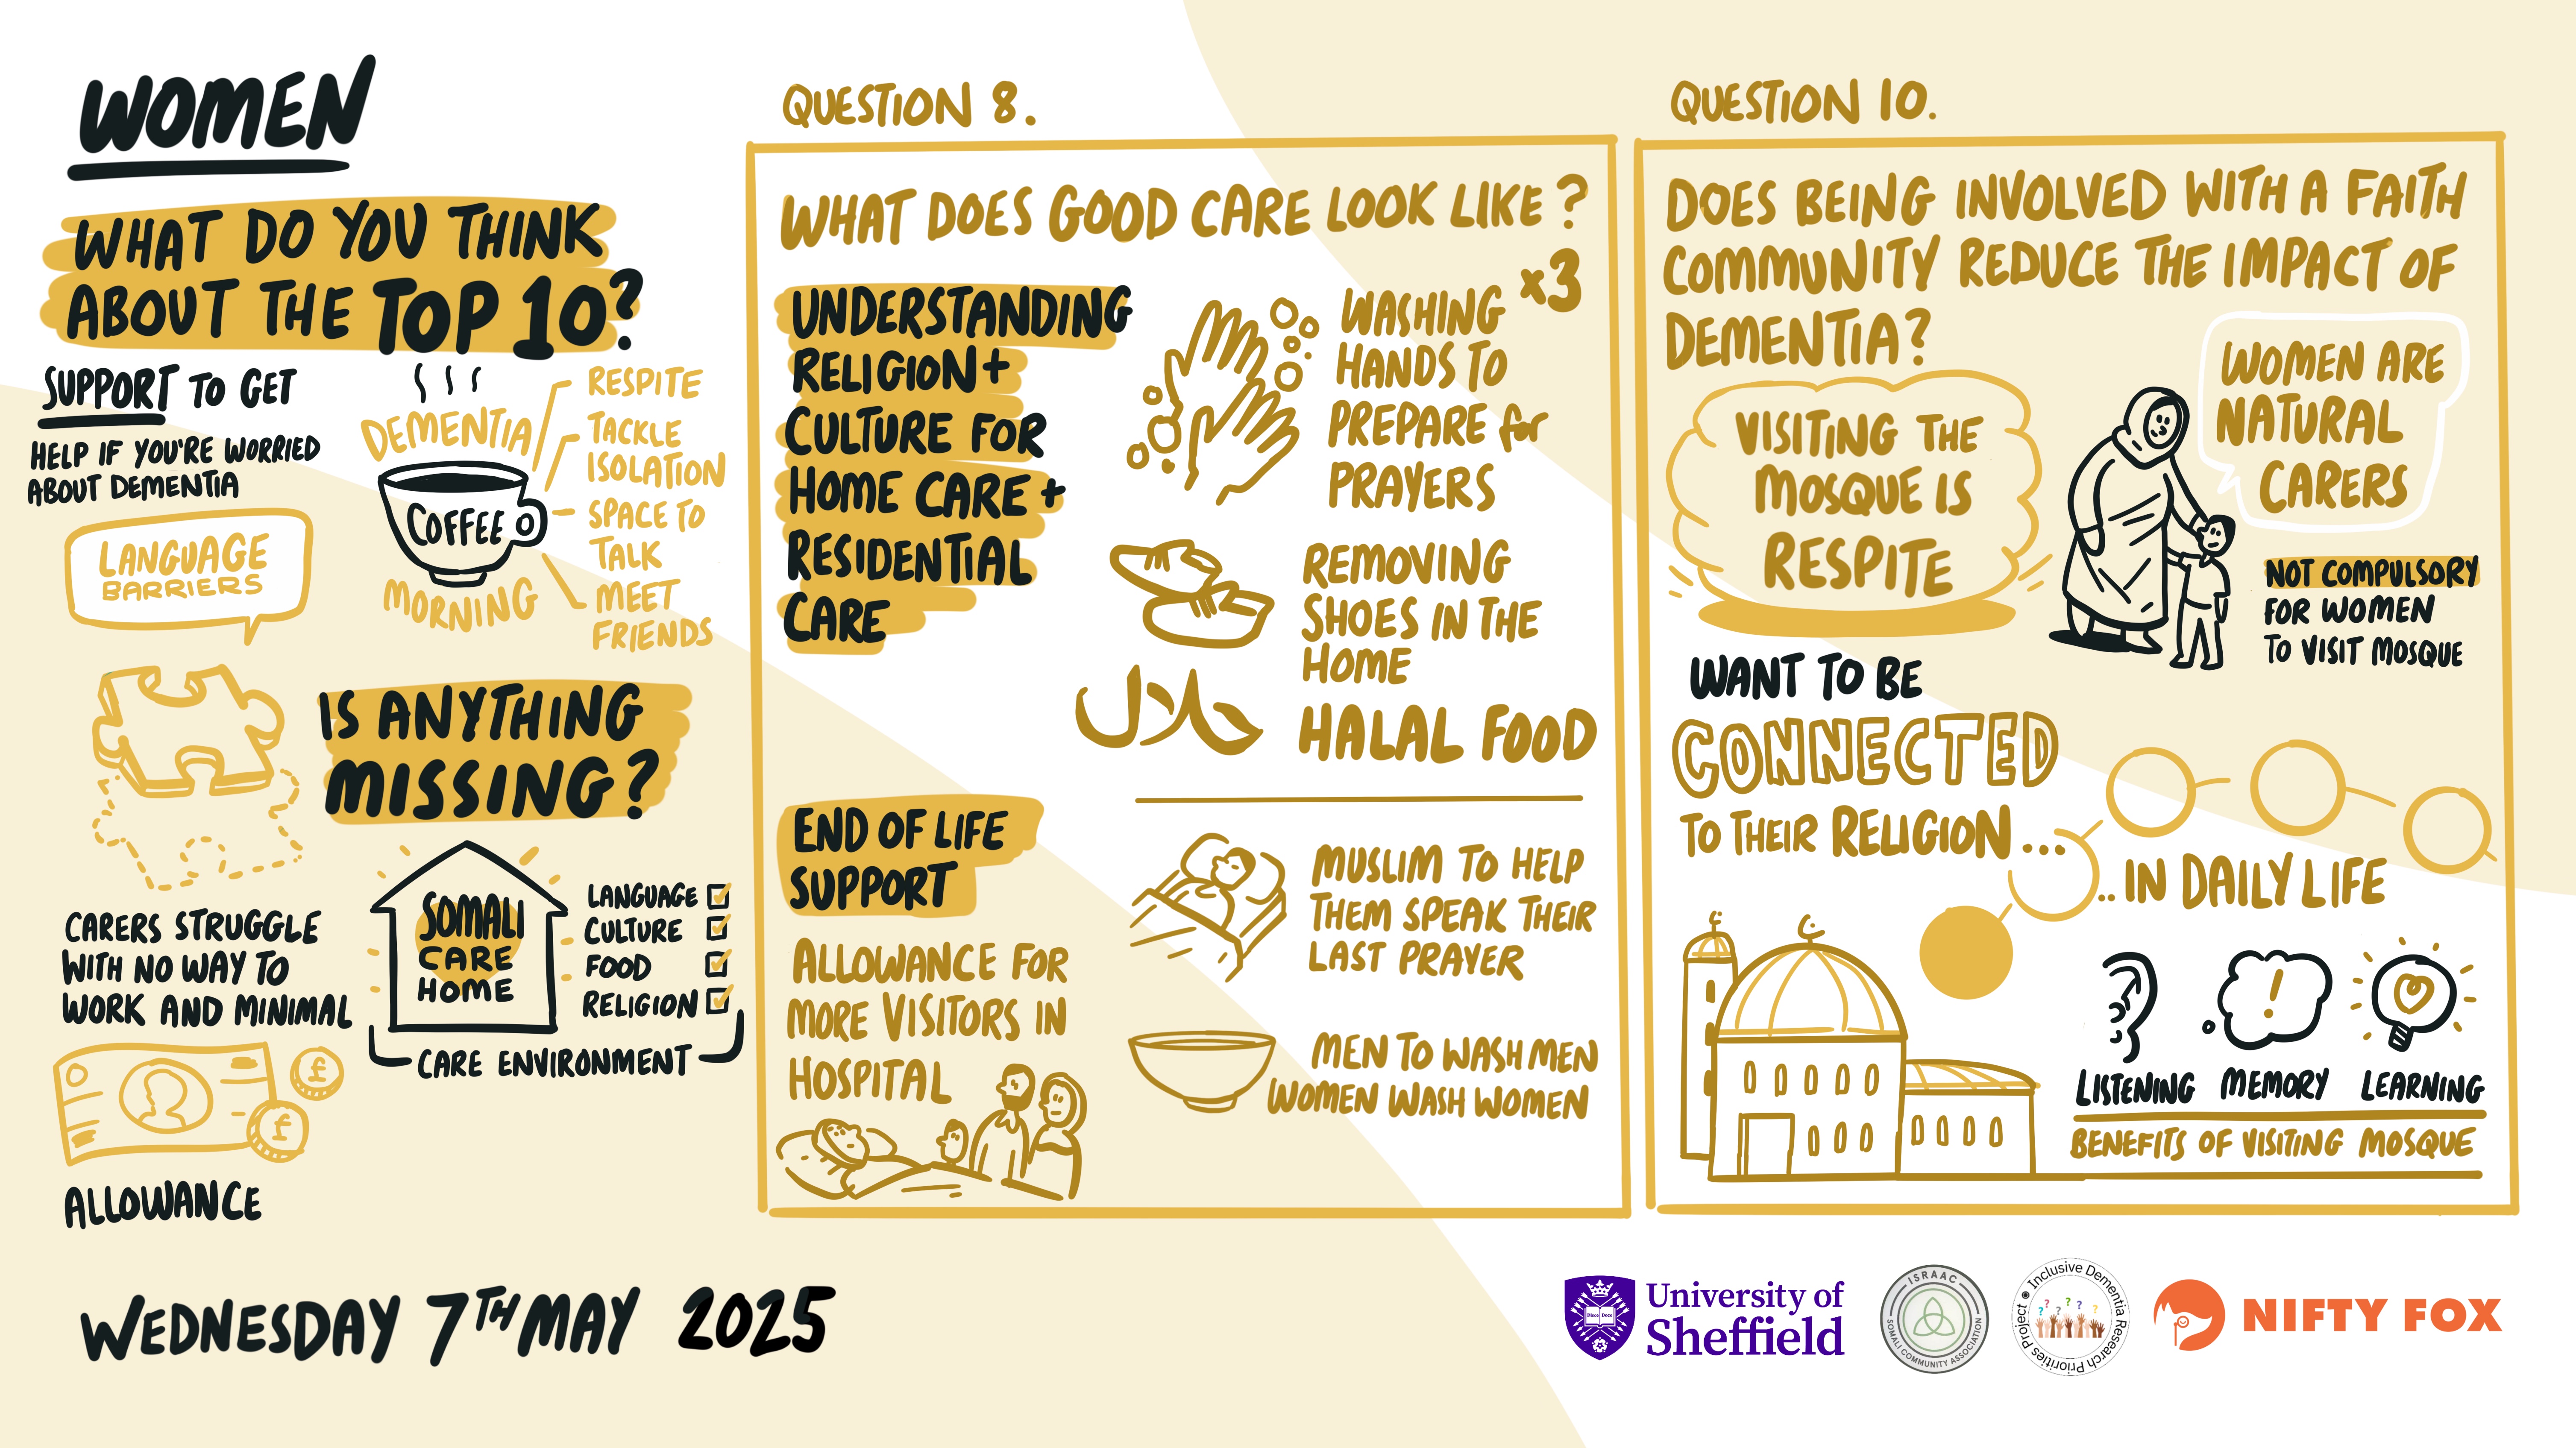 WOMEN
WHAT DO YOU THINK
ABOUT THE TOP 10?
SUPPORT TO GET
HELP IF YOU'RE WORRIED
ABOUT DEMENTIA
LANGUAGE
BARRIERS
DEMENTIA
COFFEE
MORNING
RESPITE
TACKLE
ISOLATION
SPACE TO
TALK
MEET
FRIENDS
IS ANYTHING
MISSING?
CARERS STRUGGLE
WITH NO WAY TO
WORK AND MINIMAL
£
£
ALLOWANCE
SOMALI
CARE
HOME
LANGUAGE
CULTURE
FOOD
RELIGION
CARE ENVIRONMENT
QUESTION 8.
WHAT DOES GOOD CARE LOOK LIKE?
UNDERSTANDING
RELIGION +
CULTURE FOR
HOME CARE +
RESIDENTIAL
CARE
WASHING x3
HANDS TO
PREPARE for
PRAYERS
REMOVING
SHOES IN THE
HOME
حلال
HALAL FOOD
END OF LIFE
SUPPORT
ALLOWANCE FOR
MORE VISITORS IN
HOSPITAL
MUSLIM TO HELP
THEM SPEAK THEIR
LAST PRAYER
MEN TO WASH MEN
WOMEN WASH WOMEN
QUESTION 10.
DOES BEING INVOLVED WITH A FAITH
COMMUNITY REDUCE THE IMPACT OF
DEMENTIA?
VISITING THE
MOSQUE IS
RESPITE
WOMEN ARE
NATURAL
CARERS
NOT COMPULSORY
FOR WOMEN
TO VISIT MOSQUE
WANT TO BE
CONNECTED
TO THEIR RELIGION...
..IN DAILY LIFE
!
LISTENING MEMORY LEARNING
BENEFITS OF VISITING MOSQUE
WEDNESDAY 7TH MAY 2025
University of
Sheffield
ISRAAC
SOMALI COMMUNITY ASSOCIATION
Inclusive Dementia Research Priorities Project
? ? ? ? ? ?
NIFTY FOX